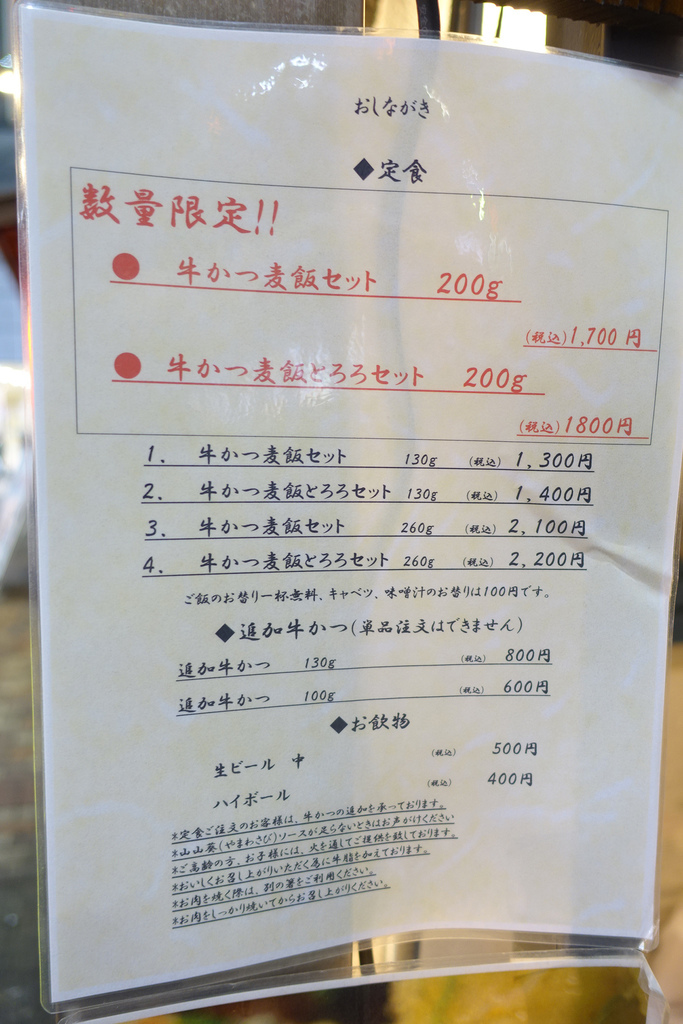 おしながき
◆定食
数量限定!!
● 牛かつ麦飯セット 200g
(税込)1,700円
● 牛かつ麦飯とろろセット 200g
(税込)1800円
1. 牛かつ麦飯セット 130g (税込) 1,300円
2. 牛かつ麦飯とろろセット 130g (税込) 1,400円
3. 牛かつ麦飯セット 260g (税込) 2,100円
4. 牛かつ麦飯とろろセット 260g (税込) 2,200円
ご飯のお替り一杯無料、キャベツ、味噌汁のお替りは100円です。
◆追加牛かつ(単品注文はできません)
追加牛かつ 130g (税込) 800円
追加牛かつ 100g (税込) 600円
◆お飲物
生ビール 中 (税込) 500円
ハイボール (税込) 400円
*定食ご注文のお客様は、牛かつの追加を承っております。
*山山葵(やまわさび)ソースが足らないときはお声がけください
*ご高齢の方、お子様には、火を通してご提供を致しております。
*おいしくお召し上がりいただく為に牛脂を加えております。
*お肉を焼く際は、別の箸をご利用ください。
*お肉をしっかり焼いてからお召し上がりください。